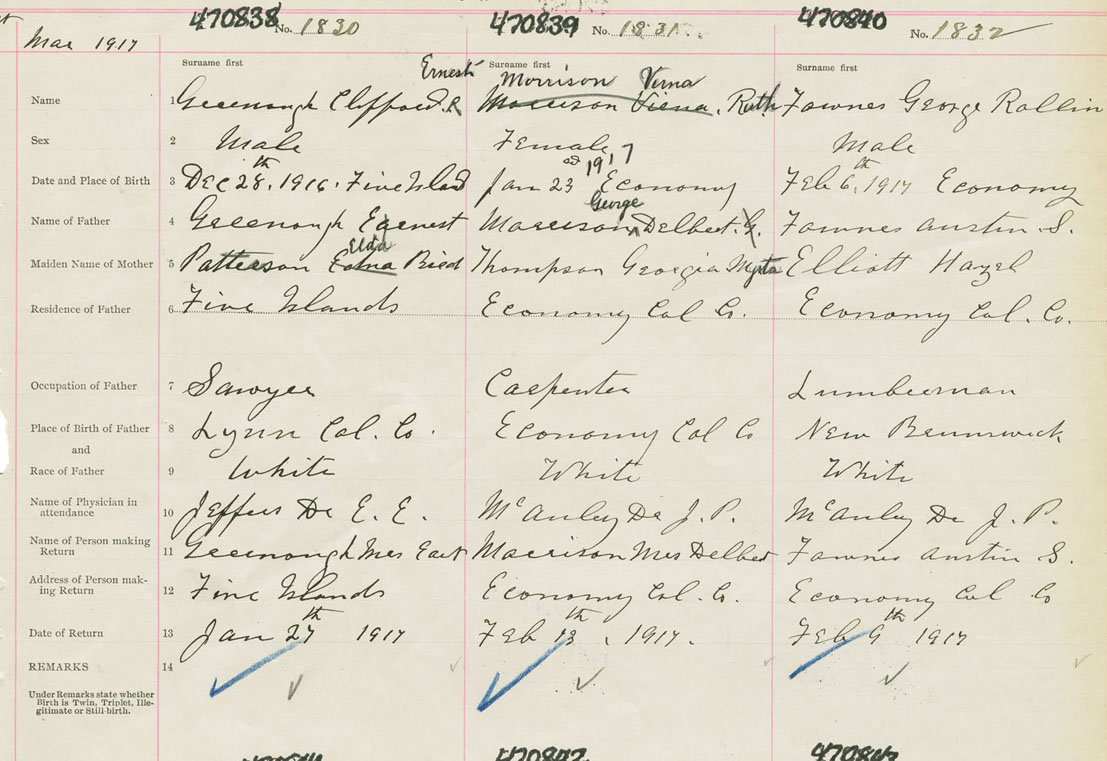 470838 No. 1830 470839 No. 1831. 470840 No. 1832
Mar 1917
Surname first Surname first Surname first
Ernest Morrison Verna
Name 1 Greenough Clifford. R Morrison Viena, Ruth Fawnes George Rollin
Sex 2 Male Female Male
1917
Date and Place of Birth 3 Dec 28th, 1916. Five Island Jan 23rd Economy Feb 6th, 1917 Economy
George
Name of Father 4 Greenough Earnest Morrison, Delbert. G. Fawnes Austin S.
Elda
Maiden Name of Mother 5 Patterson Edna Bried Thompson Georgia Myrta Elliott Hazel
Residence of Father 6 Five Islands Economy Col Co. Economy Col. Co.
Occupation of Father 7 Sawyer Carpenter Lumberman
Place of Birth of Father 8 Lynn Col. Co. Economy Col Co New Brunswick
and
Race of Father 9 White White White
Name of Physician in
attendance 10 Jeffers Dr E. E. McAuley Dr J. P. McAuley Dr J. P.
Name of Person making
Return 11 Greenough Mrs Earn Morrison Mrs Delbert Fawnes Austin S.
Address of Person mak-
ing Return 12 Five Islands Economy Col. Co. Economy Col Co
Date of Return 13 Jan 27th 1917 Feb 13th, 1917. Feb 9th 1917
REMARKS 14
Under Remarks state whether
Birth is Twin, Triplet, Ille-
gitimate or Still-birth.
470842